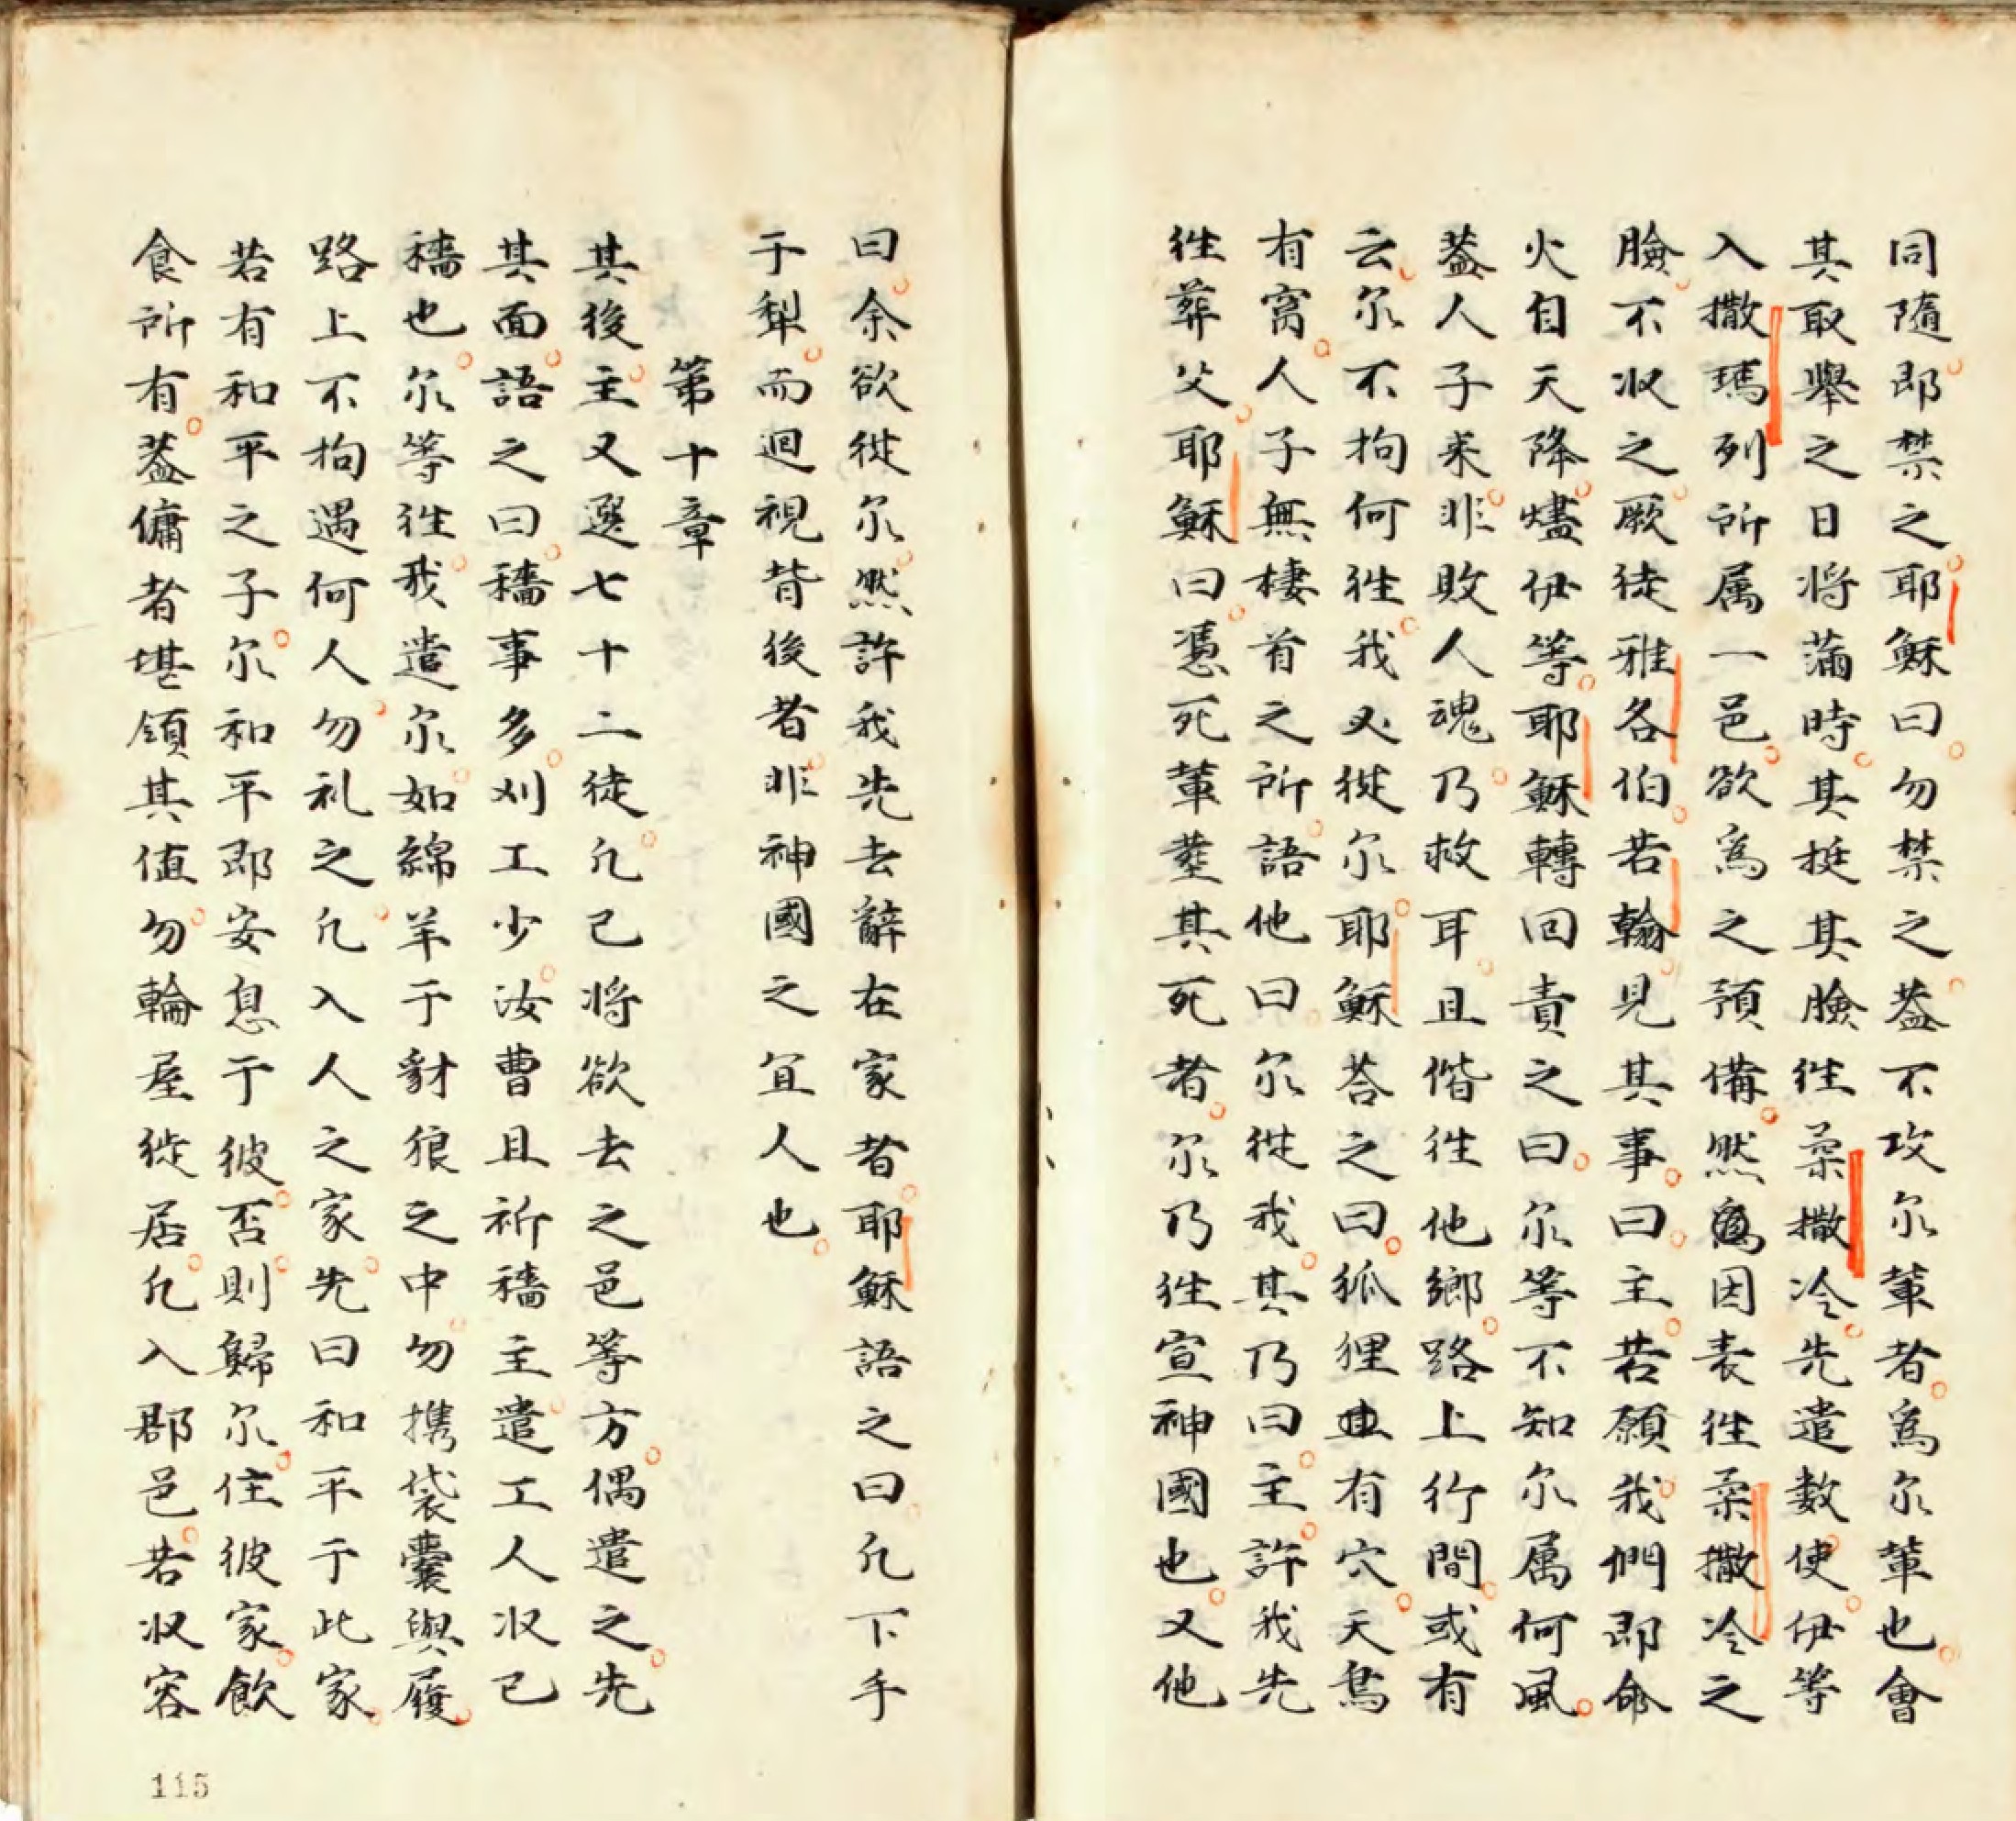 同隨即禁之耶穌曰勿禁之葢不攻尔輩者為尔輩也會
其取舉之日将滿時其挺其臉徃柔撒冷先遣數使伊等
入撒瑪列所属一邑欲為之預備然為因表徃柔撒冷之
臉不収之厥徒雅各伯若翰見其事曰主若願我們即命
火自天降燼伊等耶穌轉回責之曰尔等不知尔属何風
葢人子来非敗人魂乃救耳且偕徃他鄉路上行間或有
云尔不拘何徃我必従尔耶穌荅之曰狐狸且有穴天鳥
有窩人子無棲首之所語他曰尔従我其乃曰主許我先
徃葬父耶穌曰憑死輩塟其死者尔乃徃宣神國也又他
曰余欲従尔然許我先去辭在家者耶穌語之曰凢下手
于犁而迴視背後者非神國之宜人也
第十章
其後主又選七十二徒凢己将欲去之邑等方偶遣之先
其面語之曰穡事多刈工少汝曹且祈穡主遣工人収己
穡也尔等徃我遣尔如綿羊于豺狼之中勿携袋囊與履
路上不拘遇何人勿礼之凢入人之家先曰和平于此家
若有和平之子尔和平即安息于彼否則歸尔住彼家飲
食所有葢傭者堪領其值勿輪屋徙居凢入郡邑若収容
115